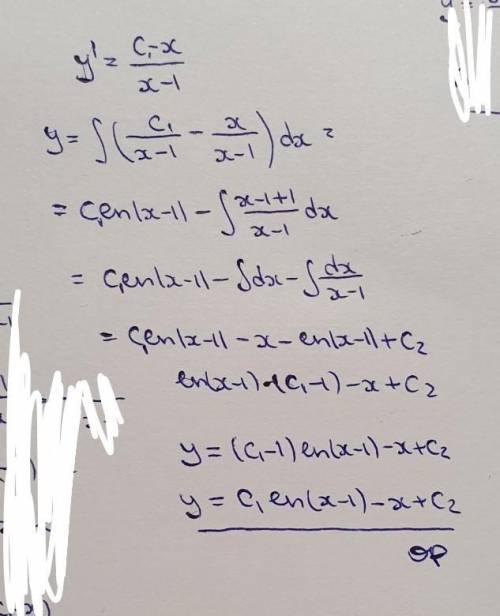 y' = (C₁-x)/(x-1)
y = ∫(C₁/(x-1) - x/(x-1))dx =
= C₁ ln|x-1| - ∫(x-1+1)/(x-1) dx
= C₁ ln|x-1| - ∫dx - ∫dx/(x-1)
= C₁ ln|x-1| - x - ln|x-1| + C₂
ln(x-1) · (C₁-1) - x + C₂
y = (C₁-1) ln(x-1) - x + C₂
y = C₁ ln(x-1) - x + C₂